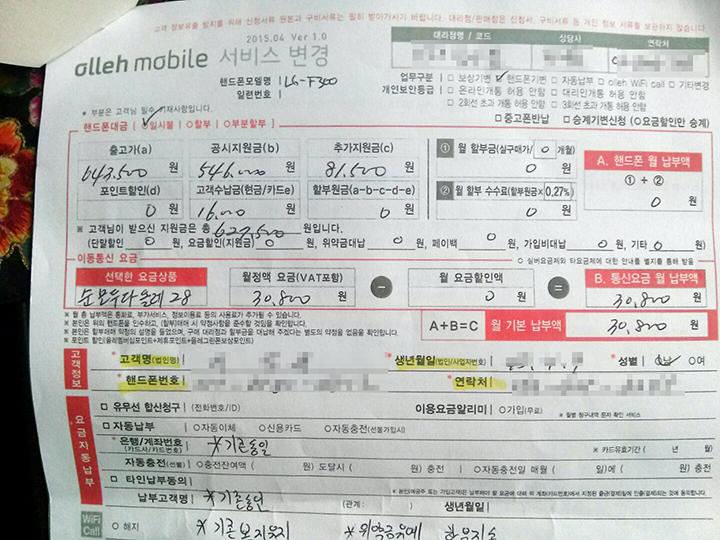 고객 정보유출 방지를 위해 신청서류 원본과 구비서류는 필히 받아가시기 바랍니다. 대리점/판매점은 신청서, 구비서류 등 개인 정보 서류를 보관하지 않습니다.
2015.04 Ver 1.0
olleh mobile 서비스 변경
대리점명 / 코드 상담사 연락처
핸드폰모델명 LG-F300
일련번호
업무구분 □ 보상기변 ☑ 핸드폰기변 □ 자동납부 □ olleh WiFi call □ 기타변경
개인보안등급 □ 온라인개통 허용 안함 □ 대리인개통 허용 안함
□ 2회선 초과 개통 허용 안함 □ 3회선 초과 개통 허용 안함
* 부분은 고객님 필수 기재사항입니다.
□ 중고폰반납 □ 승계기변신청 (○요금할인만 승계)
핸드폰대금 [ ☑일시불 ○할부 ○부분할부 ]
출고가(a) 공시지원금(b) 추가지원금(c)
643,500 원 546,000 원 81,500 원
포인트할인(d) 고객수납금(현금/카드e) 할부원금(a-b-c-d-e)
0 원 16,000 원 0 원
① 월 할부금(실구매가/ 0 개월)
0 원
② 월 할부 수수료(할부원금× 0.27%)
0 원
A. 핸드폰 월 납부액
① + ②
0 원
※ 고객님이 받으신 지원금은 총 627,500 원입니다.
(단말할인 0 원, 요금할인(지원금) 0 원, 위약금대납 0 원, 페이백 0 원, 가입비대납 0 원, 기타 0 원)
이동통신 요금
○ 실버요금제와 타요금제에 대한 안내를 별지를 통해 받음
선택한 요금상품 월정액 요금(VAT포함) 월 요금할인액 B. 통신요금 월 납부액
순 모두다올레 28 30,800 원 - 0 원 = 30,800 원
※ 월 총 납부액은 통화료, 부가서비스, 정보이용료 등의 사용료가 추가될 수 있습니다.
※ 본인은 위의 핸드폰을 인수하고, (할부)매매 시 약정사항을 준수할 것임을 확인합니다.
※ 본인은 할부매매 약정의 설명을 들었으며, 구매 대리점이 할부금을 대납해 주겠다는 별도의 약정은 없음을 확인합니다.
※ 포인트 할인(올레멤버십포인트+제휴포인트+올레그린폰보상포인트)
A+B=C 월 기본 납부액 30,800 원
고객정보
* 고객명(법인명) * 생년월일(법인/사업자번호) * 성별 ☑남 ○여
* 핸드폰번호 * 연락처
요금자동납부
□ 유무선 합산청구 (전화번호/ID) 이용요금알리미 ○가입(무료) ※ 월별 청구내역 문자 확인 서비스
□ 자동납부 ○자동이체 ○신용카드 ○자동충전(선불가입시)
* 은행/계좌번호 (카드사/카드번호) *기존동일 ※ 카드유효기간 ( 년 월)
자동충전(선불) ○충전잔여액 ( 원) 도달시 ( 원) 충전 ○자동충전일 매월 ( 일)에 ( 원) 충전
□ 타인납부동의
납부고객명 *기존승인 (관계: ) 생년월일
WiFi Call
○ 해지 *기존보지유지 *위약금유예